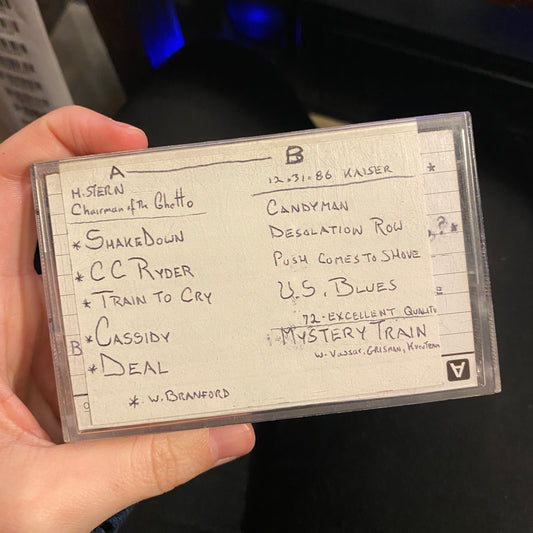 A B
H. STERN
Chairman of the Ghetto
* SHAKEDOWN
* C C RYDER
* TRAIN TO CRY
* CASSIDY
* DEAL
* W. BRANFORD
12.31.86 KAISER
CANDYMAN
DESOLATION ROW
PUSH COMES TO SHOVE
U.S. BLUES
72 - EXCELLENT QUALITY
MYSTERY TRAIN
W. VASSAR, GRISMAN,
*
? *
B
A